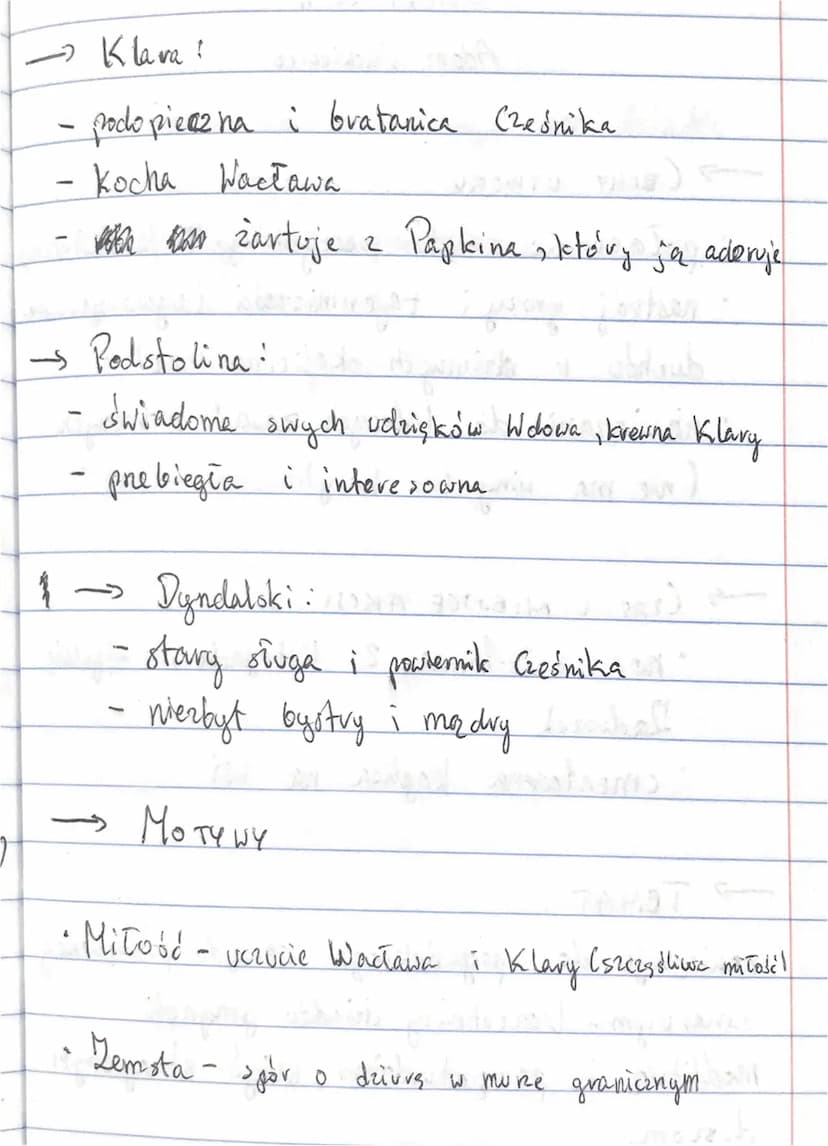 → Klara:
- podopieczna i bratanica Cześnika
- kocha Wacława
- żartuje z Papkina, który ją adoruje
→ Podstolina:
- świadoma swych udzięków wdowa, krewna Klary
- przebiegła i interesowna
→ Dyndalski:
- stary sługa i powiernik Cześnika
- niezbyt bystry i mądry
→ MOTYWY
· Miłość - uczucie Wacława i Klary (szczęśliwa miłość)
· Zemsta - spór o dziurę w murze granicznym